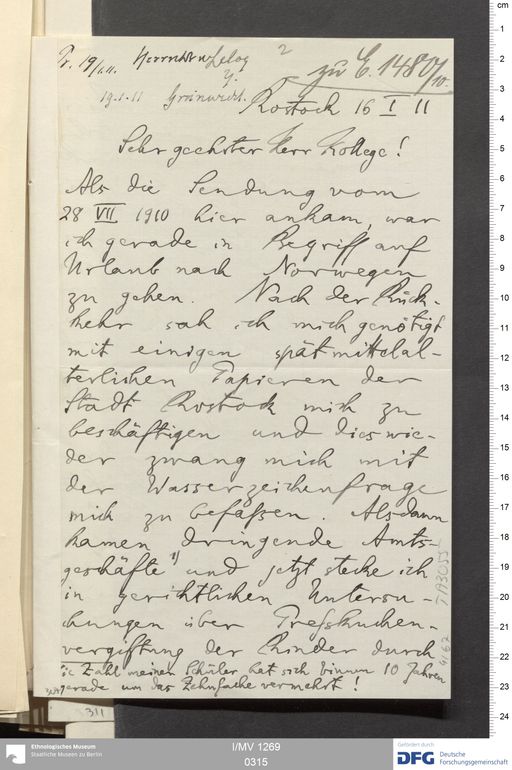 Pr. 19/1.11. Herrn Dr v. Lecoq
2
zu E. 1480/10.
19.1.11 Grünwedel.
Rostock 16 I 11
Sehr geehrter Herr Kollege!
Als die Sendung vom
28 VII 1910 hier ankam, war
ich gerade in Begriff auf
Urlaub nach Norwegen
zu gehen. Nach der Rück-
kehr sah ich mich genötigt
mit einigen spätmittelal-
terlichen Papieren der
Stadt Rostock mich zu
beschäftigen und dies wie-
der zwang mich mit
der Wasserzeichenfrage
mich zu befassen. Alsdann
kamen dringende Amts-
geschäfte 1) und jetzt stecke ich
in gerichtlichen Untersu-
chungen über Presskuchen-
vergiftung der Rinder durch
Zahl meiner Schüler hat sich binnen 10 Jahren
gerade um das Zehnfache vermehrt!
311
Ethnologisches Museum
Staatliche Museen zu Berlin
I/MV 1269
0315
Gefördert durch
DFG Deutsche
Forschungsgemeinschaft
cm
1
2
3
4
5
6
7
8
9
10
11
12
13
14
15
16
17
18
19
20
21
22
23
24